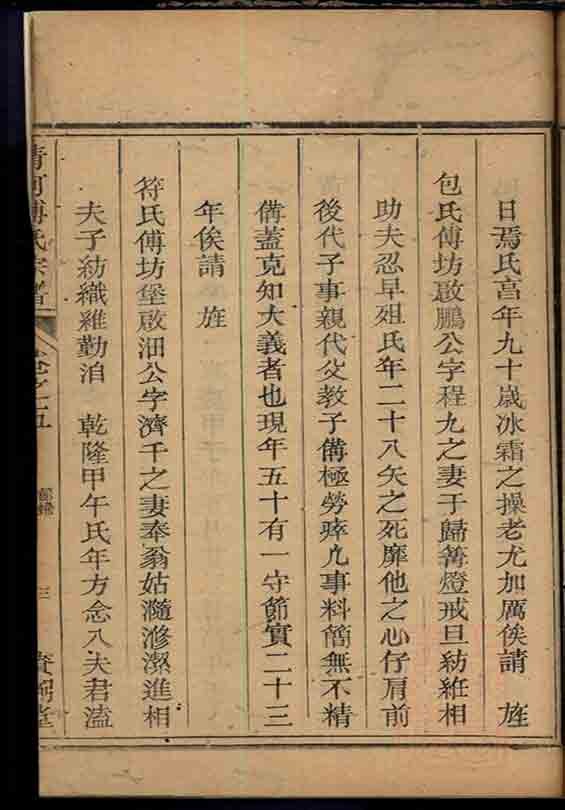 日焉氏高年九十歳冰霜之操老尤加厲俟請 旌
包氏傅坊啟鵬公字程九之妻于歸篝燈戒旦紡絍相
助夫忍早殂氏年二十八矢之死靡他之心仔肩前
後代子事親代父教子備極勞瘁凡事料簡無不精
備蓋克知大義者也現年五十有一守節實二十三
年俟請 旌
符氏傅坊堡啟沺公字濟千之妻奉翁姑瀡滫潔進相
夫子紡織維勤洎 乾隆甲午氏年方念八夫君溘
清河傅氏宗譜 卷之五 三